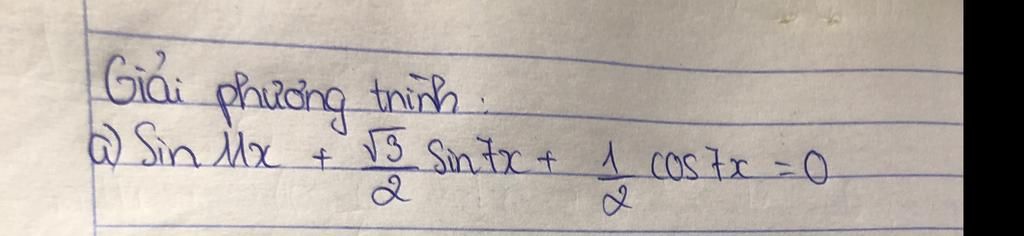 Giải phương trình:
a) Sin 11x + √3/2 Sin7x + 1/2 cos7x = 0